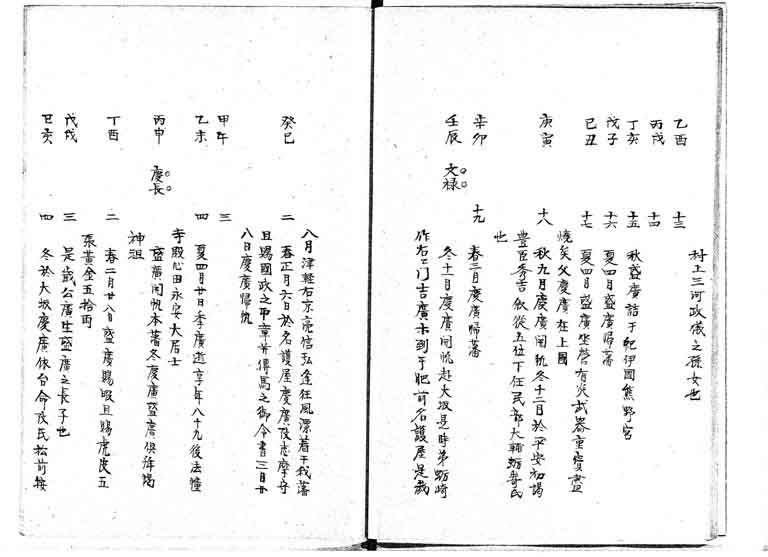 村上三河政儀之孫女也
乙酉 十三
丙戌 十四
丁亥 十五 秋盛廣詣于紀伊國熊野宮
戊子 十六 夏四月盛廣帰藩
己丑 十七 夏四月盛廣坐營有災武器重寳盡
燒矣父慶廣在上國
庚寅 十八 秋九月慶廣開帆冬十二月於平安初謁
豊臣秀吉叙從五位下任民部大輔蛎崎氏
也
辛卯 十九 春三月慶廣帰藩
壬辰 文禄 冬十一月慶廣開帆赴大坂是時弟蛎崎
作右エ門吉廣 到于肥前名護屋是歳
八月津軽右京亮信弘逢狂風漂着于我藩
癸巳 二 春正月六日於名護屋慶廣改志摩守
且賜國政之甲章并傳馬之御令書三月廿
八日慶廣帰帆
甲午 三
乙未 四 夏四月廿日季廣逝享年八十九後法幢
寺殿心田永安大居士
丙申 慶長 盛廣開帆本藩冬慶廣盛廣倶拜謁
神祖
丁酉 二 春二月廿八日盛廣賜暇且賜虎皮五
張黄金五拾両
戊戌 三 是歳公廣生盛廣之長子也
己亥 四 冬於大坂慶廣依台命改氏松前按